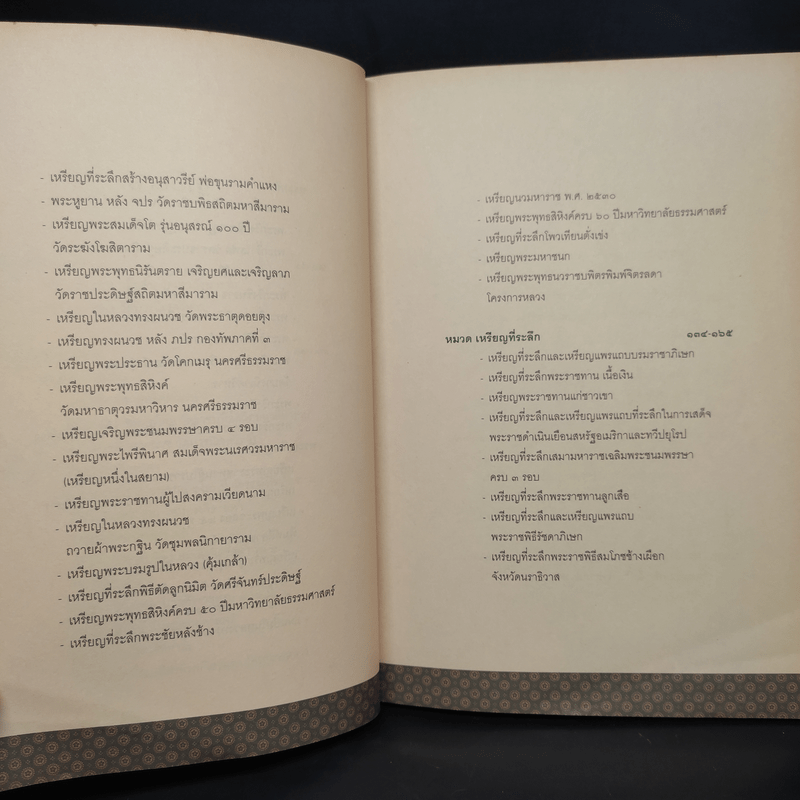 - เหรียญที่ระลึกสร้างอนุสาวรีย์ พ่อขุนรามคำแหง
- พระหูยาน หลัง จปร วัดราชบพิธสถิตมหาสีมาราม
- เหรียญพระสมเด็จโต รุ่นอนุสรณ์ ๑๐๐ ปี
วัดระฆังโฆสิตาราม
- เหรียญพระพุทธนิรันตราย เจริญยศและเจริญลาภ
วัดราชประดิษฐ์สถิตมหาสีมาราม
- เหรียญในหลวงทรงผนวช วัดพระธาตุดอยตุง
- เหรียญทรงผนวช หลัง ภปร กองทัพภาคที่ ๓
- เหรียญพระประธาน วัดโคกเมรุ นครศรีธรรมราช
- เหรียญพระพุทธสิหิงค์
วัดมหาธาตุวรมหาวิหาร นครศรีธรรมราช
- เหรียญเจริญพระชนมพรรษาครบ ๔ รอบ
- เหรียญพระไพรีพินาศ สมเด็จพระนเรศวรมหาราช
(เหรียญหนึ่งในสยาม)
- เหรียญพระราชทานผู้ไปสงครามเวียดนาม
- เหรียญในหลวงทรงผนวช
ถวายผ้าพระกฐิน วัดชุมพลนิกายาราม
- เหรียญพระบรมรูปในหลวง (คุ้มเกล้า)
- เหรียญที่ระลึกพิธีตัดลูกนิมิต วัดศรีจันทร์ประดิษฐ์
- เหรียญพระพุทธสิหิงค์ครบ ๕๐ ปีมหาวิทยาลัยธรรมศาสตร์
- เหรียญที่ระลึกพระชัยหลังช้าง
- เหรียญนวมหาราช พ.ศ. ๒๕๓๐
- เหรียญพระพุทธสิหิงค์ครบ ๖๐ ปีมหาวิทยาลัยธรรมศาสตร์
- เหรียญที่ระลึกโพวเทียนตั่งเซ่ง
- เหรียญพระมหาชนก
- เหรียญพระพุทธนวราชบพิตรพิมพ์จิตรลดา
โครงการหลวง
หมวด เหรียญที่ระลึก ๑๓๔-๑๖๕
- เหรียญที่ระลึกและเหรียญแพรแถบบรมราชาภิเษก
- เหรียญที่ระลึกพระราชทาน เนื้อเงิน
- เหรียญพระราชทานแก่ชาวเขา
- เหรียญที่ระลึกและเหรียญแพรแถบที่ระลึกในการเสด็จ
พระราชดำเนินเยือนสหรัฐอเมริกาและทวีปยุโรป
- เหรียญที่ระลึกเสมามหาราชเฉลิมพระชนมพรรษา
ครบ ๓ รอบ
- เหรียญที่ระลึกพระราชทานลูกเสือ
- เหรียญที่ระลึกและเหรียญแพรแถบ
พระราชพิธีรัชดาภิเษก
- เหรียญที่ระลึกพระราชพิธีสมโภชช้างเผือก
จังหวัดนราธิวาส